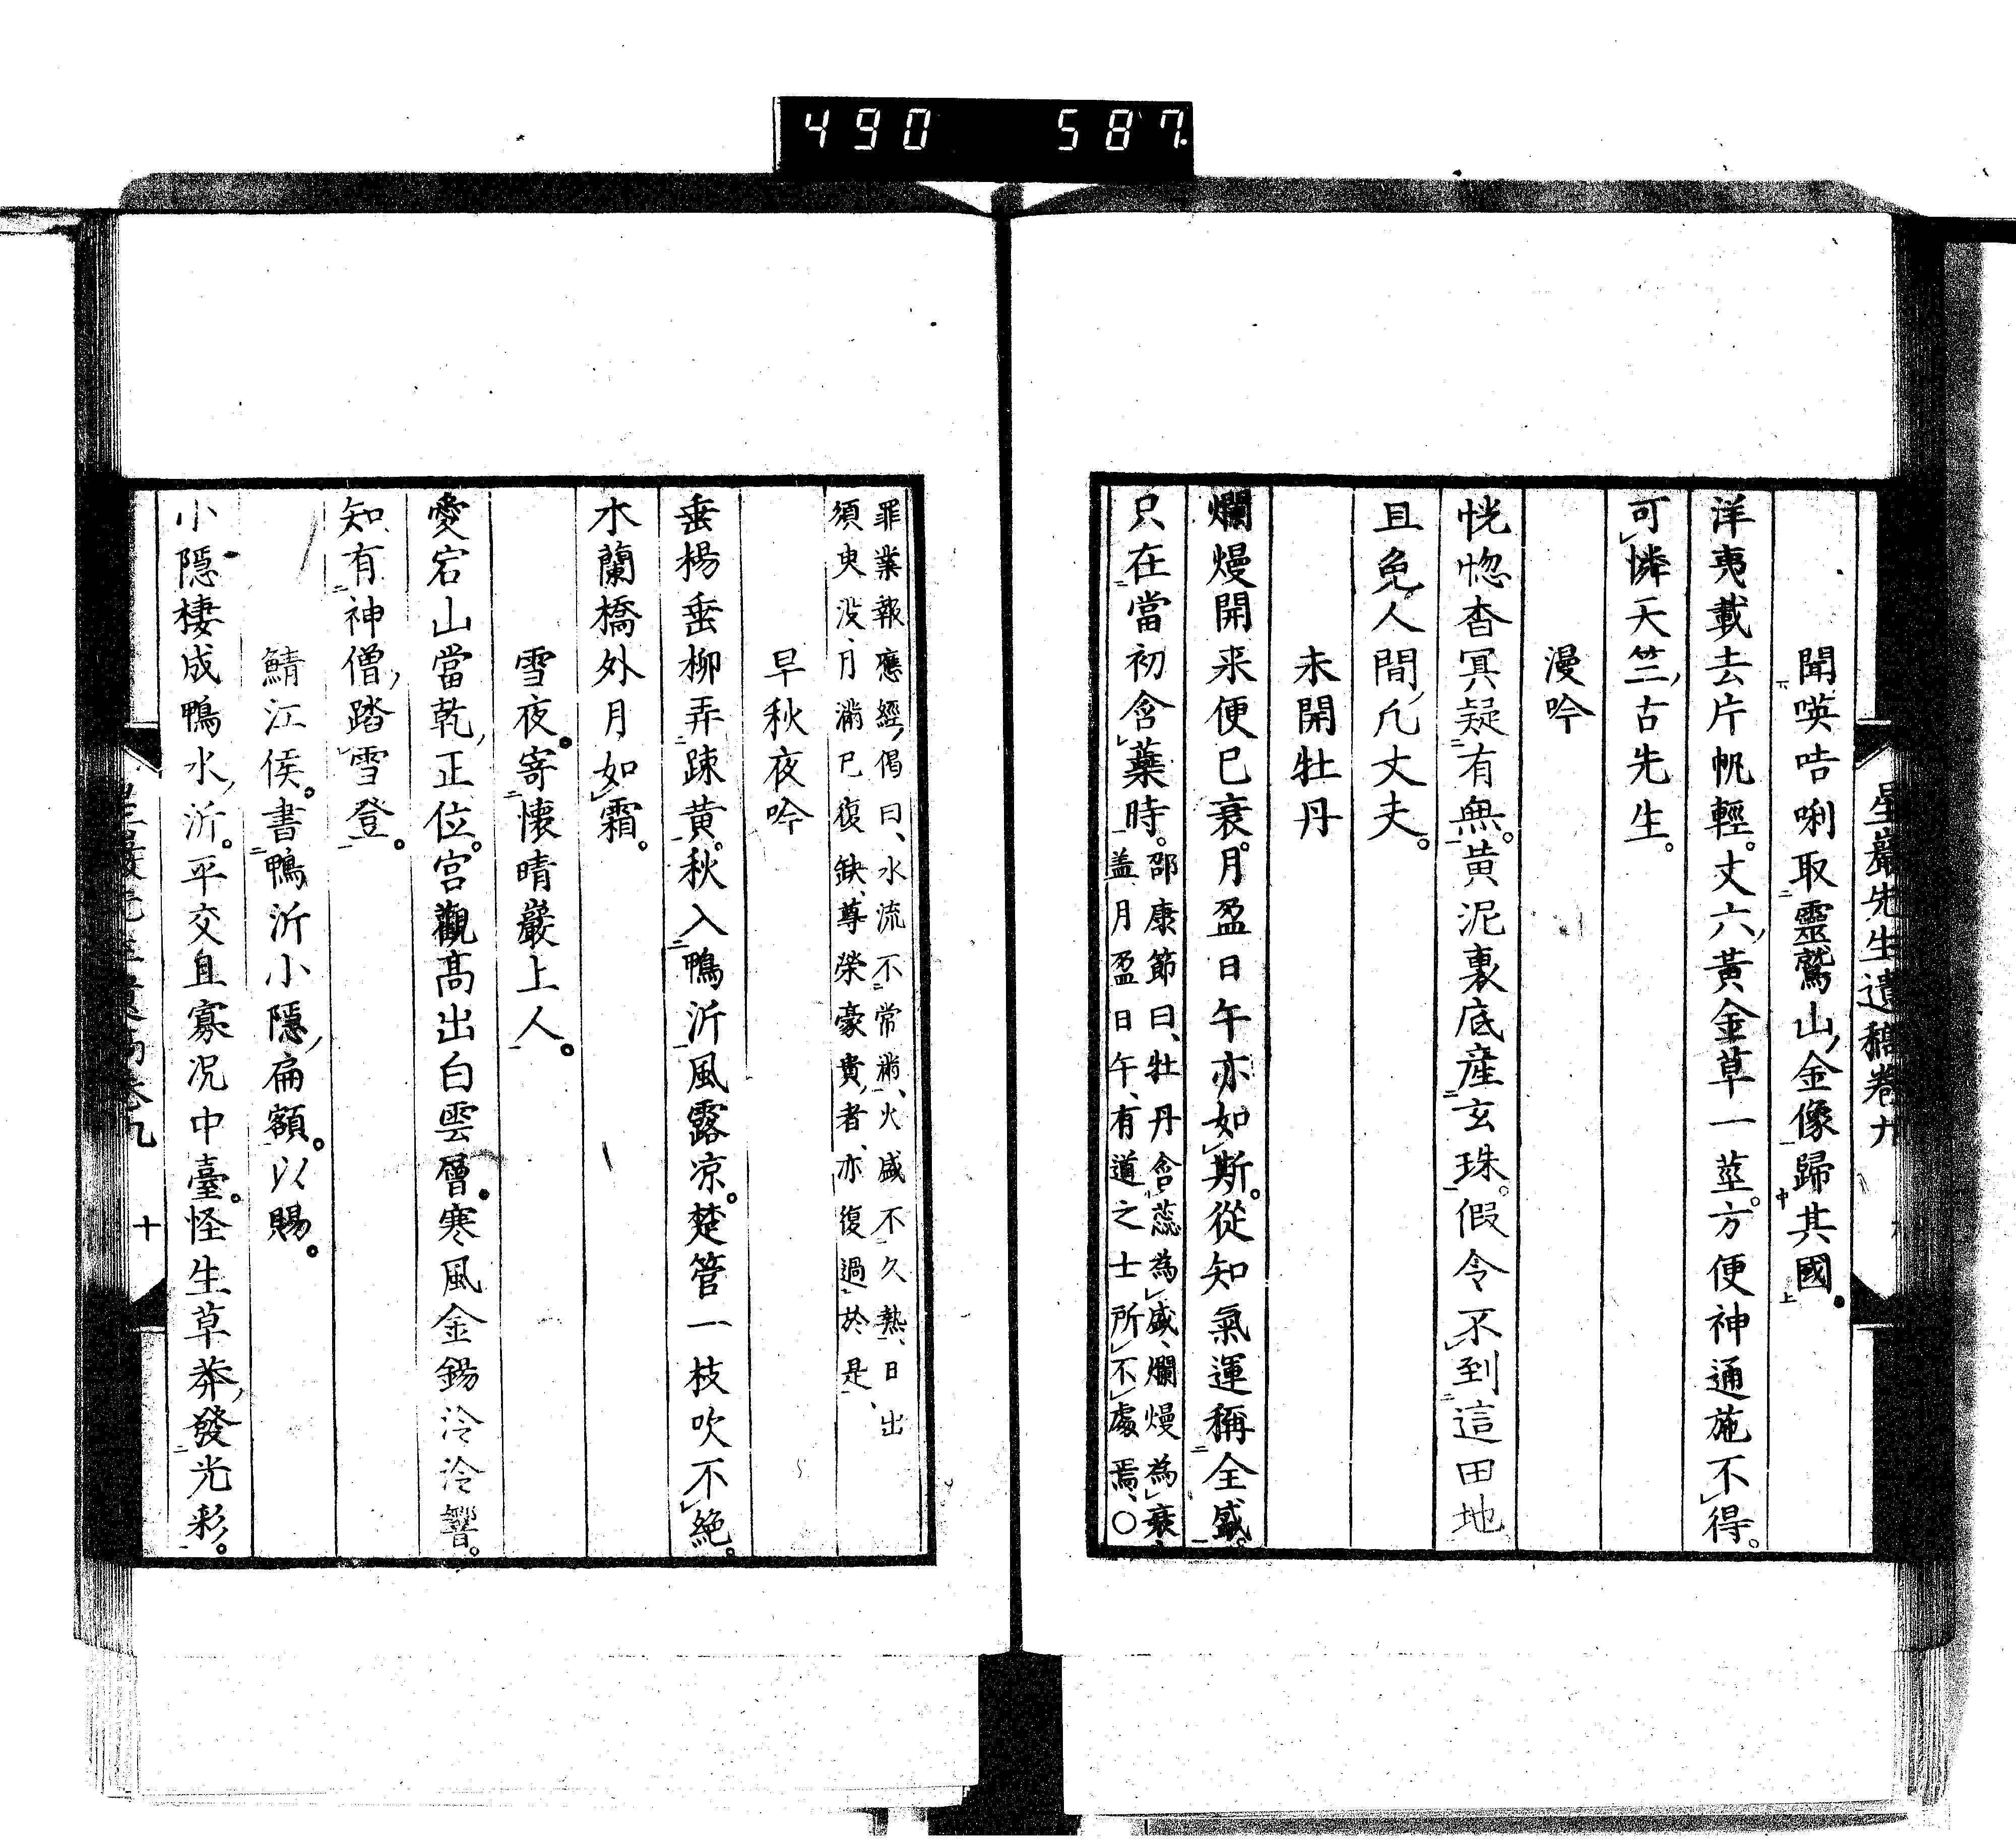 490 587
星巖先生遺稿卷九
聞㖫咭唎取靈鷲山金像歸其國。
洋夷載去片帆輕。丈六黃金草一莖。方便神通施不得。
可憐天竺古先生。
漫吟
恍惚杳冥疑有無。黄泥裏底産玄珠。假令不到這田地
且免人間凡丈夫。
未開牡丹
爛熳開来便已衰。月盈日午亦如斯。從知氣運稱全盛。
只在當初含蘂時。邵康節曰、牡丹含蕊為盛、爛熳為衰、
盖月盈日午、有道之士所不處焉、〇
罪業報應經偈曰、水流不常滿、火盛不久熱、日出
須臾没、月滿已復缺、尊榮豪貴者、亦復過於是、
早秋夜吟
垂楊垂柳弄踈黄。秋入鴨沂風露凉。楚管一枝吹不絶。
木蘭橋外月如霜。
雪夜。寄懐晴巖上人。
愛宕山當乾正位。宮觀髙出白雲層。寒風金錫泠泠響。
知有神僧踏雪登。
鯖江侯。書鴨沂小隱扁額。以賜。
小隱棲成鴨水沂。平交且寡况中臺。怪生草莽發光彩。
十